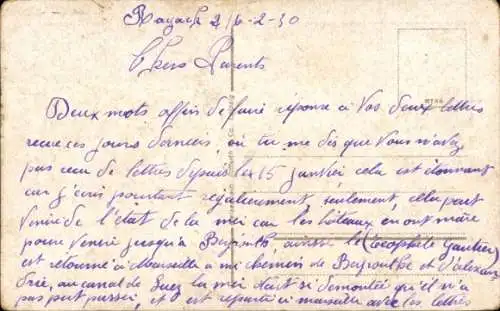 Rayack 26-2-30
Chers Parents
Deux mots affin de faire réponse a Vos deux lettres
recue ces jours derniers, ou tu me dis que Vous n'avez
pas recu de lettres depuis les 15 janvier cela est étonnant
car j'écris pourtant regulierement, seulement, cela peut
venir de l'état de la mer car les bateaux en ont marre
pour venir jusqu'a Beyrouth, aussi le (Teophile Gautier)
est retourné a Marseille a mi chemin de Beyrouthe et d'alexan
drie, au canal de Suez la mer était si démontée qu'il n'a
pas put passer, et est repartie a marseille avec les lettres